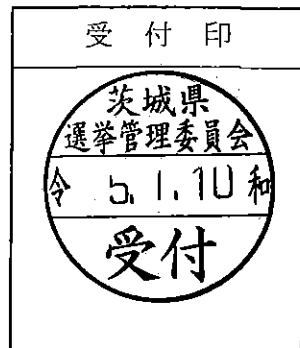 受付印
茨城県
選挙管理委員会
令 5.1.10 和
受付